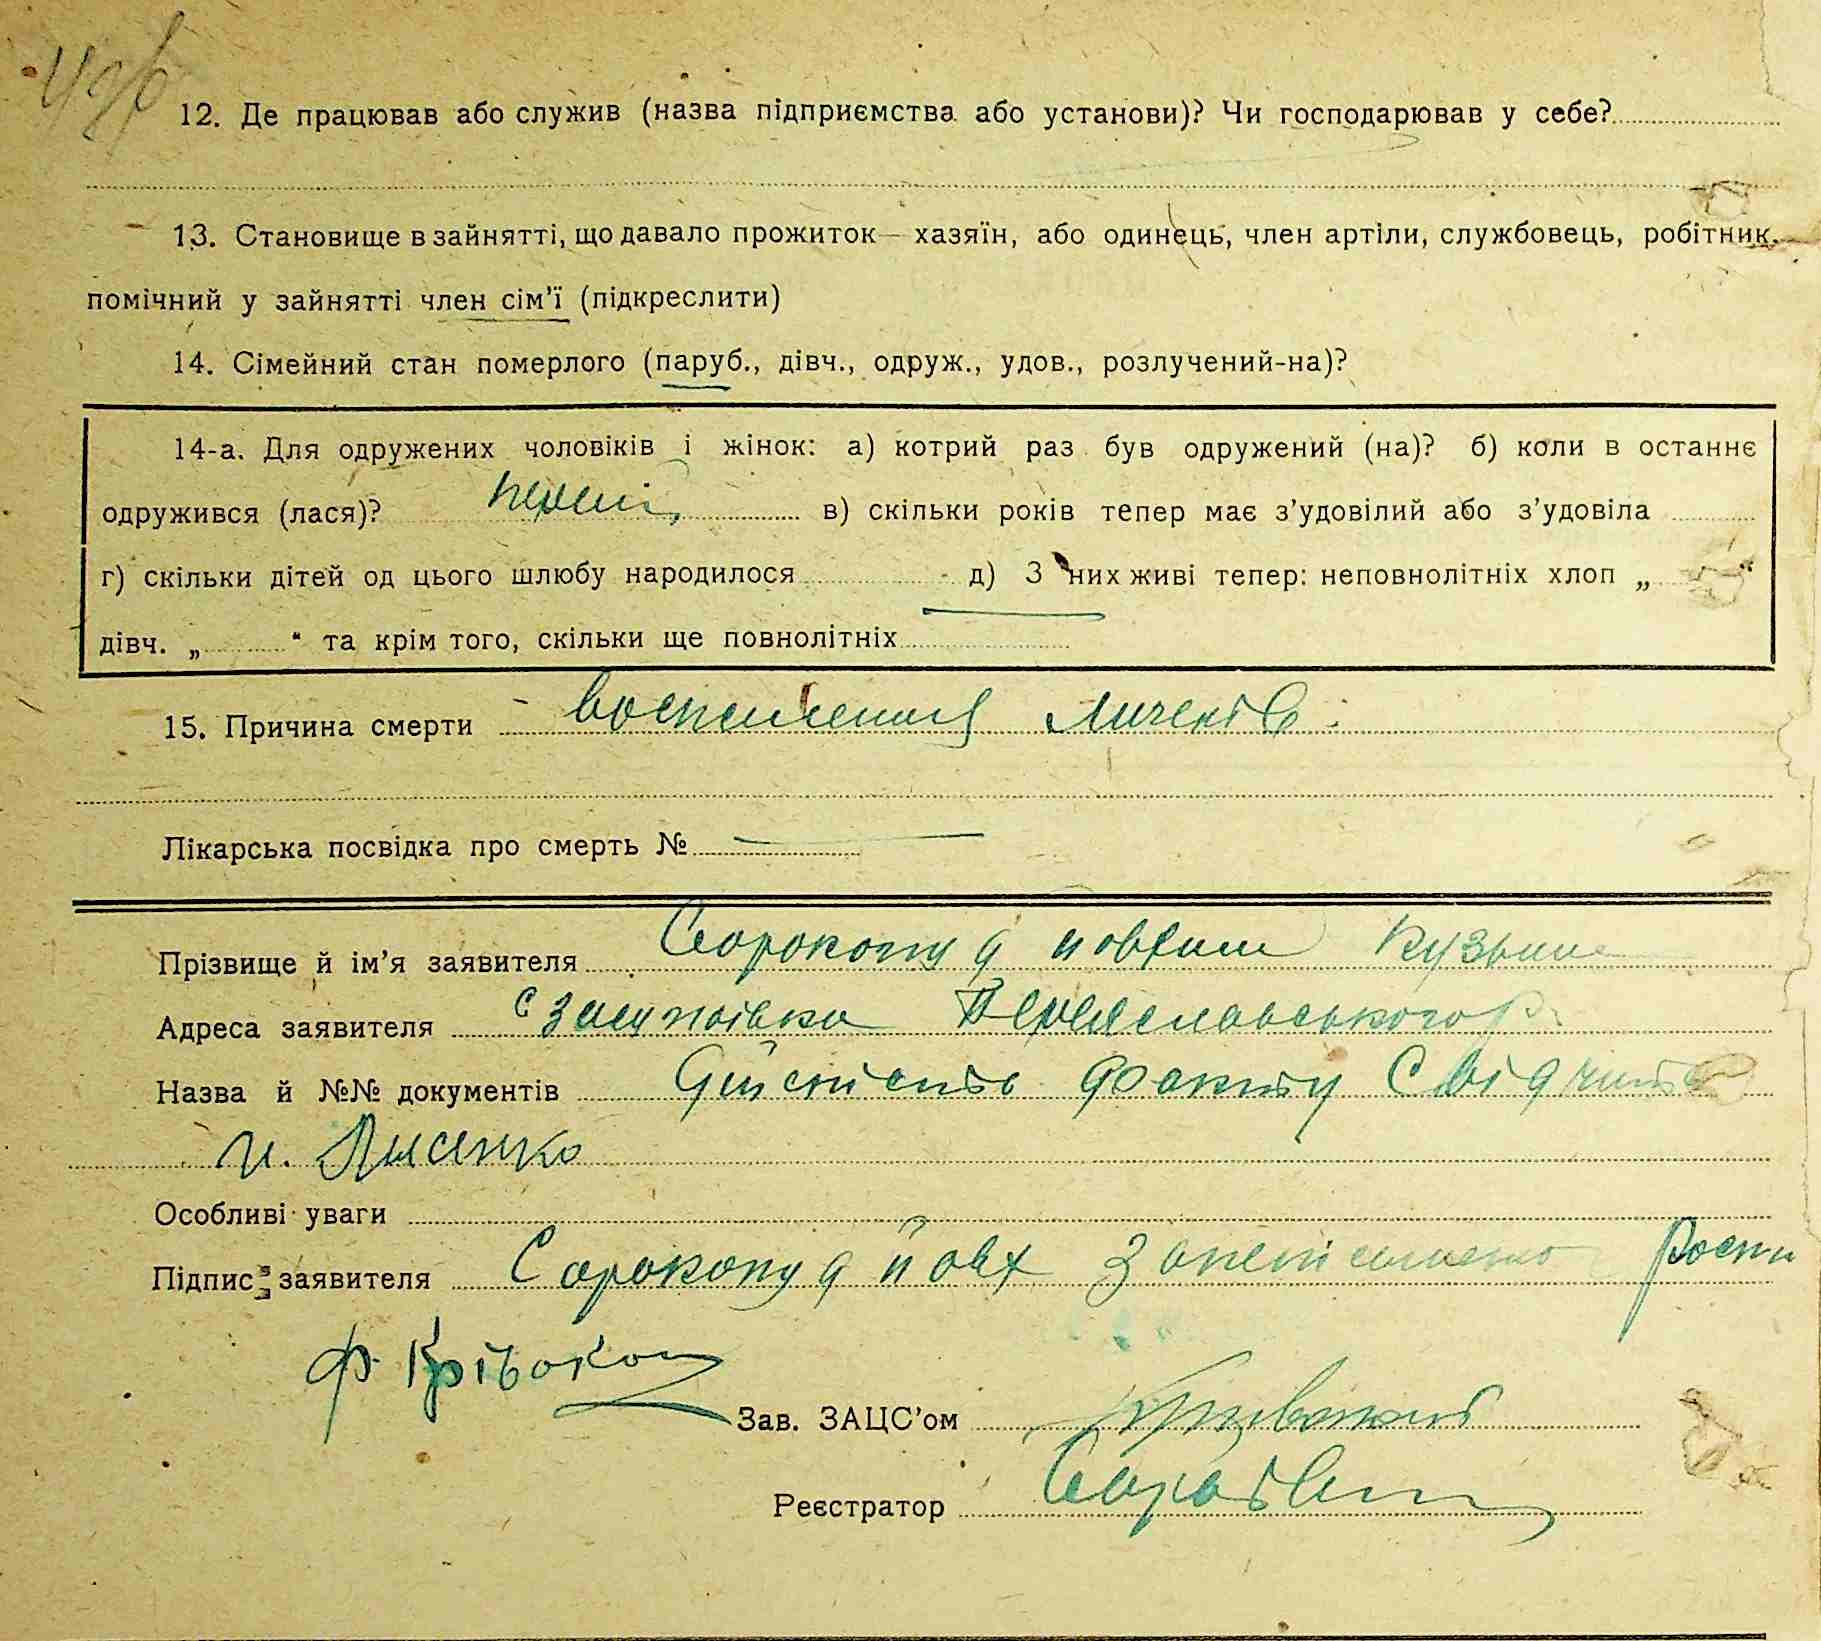 12. Де працював або служив (назва підприємства або установи)? Чи господарював у себе?
13. Становище в зайнятті, що давало прожиток — хазяїн, або одинець, член артіли, службовець, робітник,
помічний у зайнятті член сім'ї (підкреслити)
14. Сімейний стан померлого (паруб., дівч., одруж., удов., розлучений-на)?
14-а. Для одружених чоловіків і жінок: а) котрий раз був одружений (на)? б) коли в останнє
одружився (лася)? в) скільки років тепер має з'удовілий або з'удовіла
г) скільки дітей од цього шлюбу народилося д) З них живі тепер: неповнолітніх хлоп „ “
дівч. „ “ та крім того, скільки ще повнолітніх
15. Причина смерти воспаления личеств
Лікарська посвідка про смерть №
Прізвище й ім'я заявителя Сорокопуд Йовхим Кузьм
Адреса заявителя с засупоівка Переяславського р.
Назва й №№ документів дійсність факту Свідчить
И. Лисенко
Особливі уваги
Підпис заявителя Сорокопуд Йовх
Ф. Крівокон
Зав. ЗАЦС'ом
Реєстратор